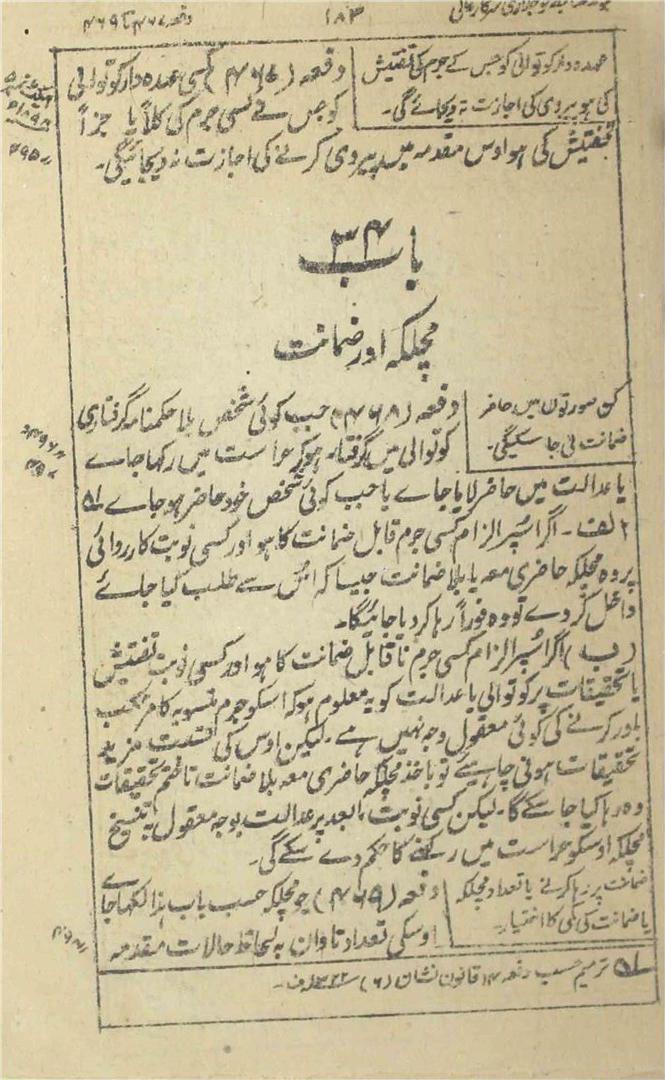 دفعہ ۴۶۷ تا ۴۶۹ ۱۸۳
عہدہ دار کوتوالی کو جس کے جرم کی تفتیش
کی ہو پیروی کی اجازت نہ دیجائے گی۔
دفعہ (۴۶۷) کسی عہدہ دار کوتوالی
کو جس نے کسی جرم کی کلاً یا جزاً
تفتیش کی ہو اوس مقدمہ میں پیروی کرنے کی اجازت نہ دیجائیگی۔
باب ۳۴
مچلکہ اور ضمانت
کن صورتوں میں حاضر
ضمانت لی جا سکیگی۔
دفعہ (۴۶۸) جب کوئی شخص بلا حکمنامہ گرفتاری
کوتوالی میں گرفتار ہو کر حراست میں رکھا جاے
یا عدالت میں حاضر لایا جاے یا جب کوئی شخص خود حاضر ہو جاے ۵۱
الف ۔ اگر اسپر الزام کسی جرم قابل ضمانت کا ہو اور کسی نوبت کارروائی
پر وہ مچلکہ حاضری معہ یا بلا ضمانت جیسا کہ اس سے طلب کیا جائے
داخل کر دے تو وہ فوراً رہا کر دیا جائیگا۔
(ب) اگر اسپر الزام کسی جرم ناقابل ضمانت کا ہو اور کسی نوبت تفتیش
یا تحقیقات پر کوتوالی یا عدالت کو یہ معلوم ہو کہ اسکو جرم منسوبہ کا مرتکب
باور کرنے کی کوئی معقول وجہ نہیں ہے ۔ لیکن اوس کی نسبت مزید
تحقیقات ہونی چاہیئے تو باخذ مچلکہ حاضری معہ بلا ضمانت تا ختم تحقیقات
وہ رہا کیا جا سکے گا۔ لیکن کسی نوبت مابعد پر عدالت بوجہ معقول بہ تنسیخ
مچلکہ اوسکو حراست میں رکھنے کا حکم دے سکے گی۔
ضمانت پر رہا کرنے یا تعداد مچلکہ
یا ضمانت کی کمی کا اختیار۔
دفعہ (۴۶۹) جو مچلکہ حسب باب ہذا لکھا جاے
اوسکی تعداد تاوان بہ لحاظ حالات مقدمہ
۵۱ ترمیم حسب دفعہ ۴ قانون نشان (۶) ۱۳۲۲ف ۔